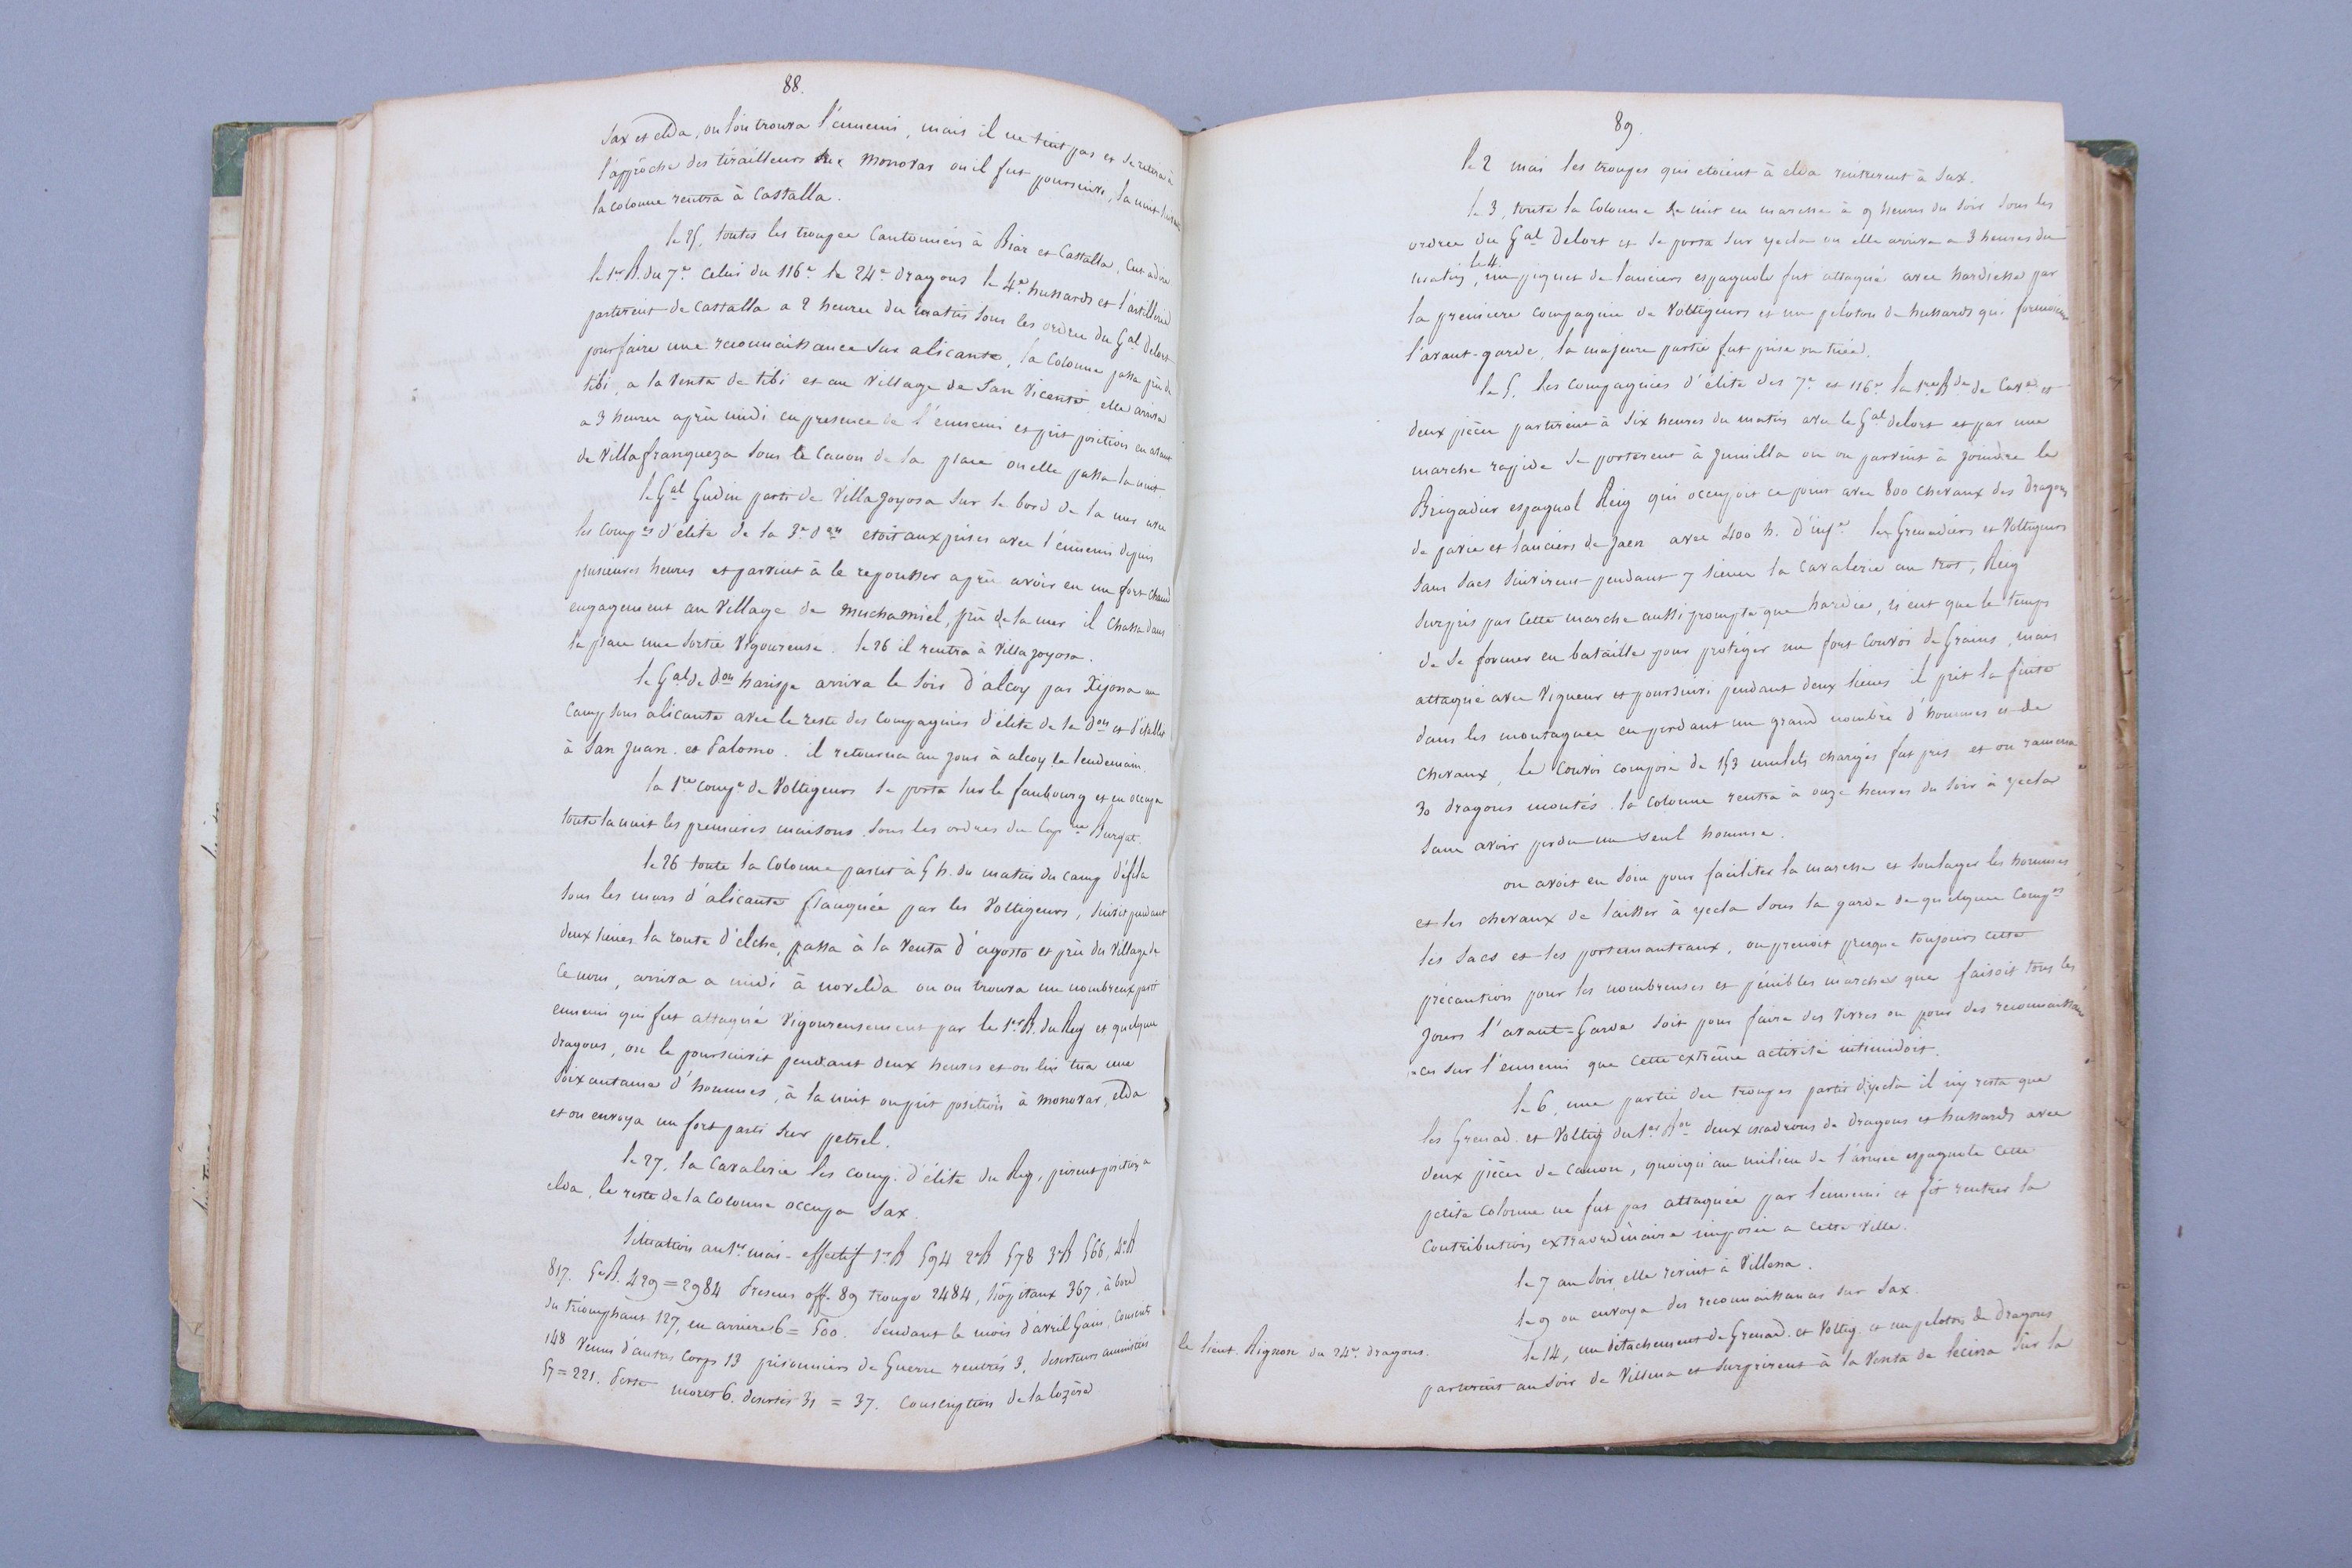 88.
Sax et elda, ou l'on trouva l'ennemi, mais il ne tint pas et se retira à
l'approche des tirailleurs sur monovar ou il fut poursuivi, la nuit
la colonne rentra à Castalla.
le 25, toutes les troupes Cantonnées à Biar et Castalla, C'est a dire
le 1er B. du 7e celui du 116e le 24e dragons le 4e hussards et l'artillerie
partirent de Castalla a 2 heures du matin sous les ordres du Gal delort
pour faire une reconnaissance sur alicante, la Colonne passa près de
tibi, a la Venta de tibi et au village de San Vicente, elle arriva
a 3 heures après midi en presence de l'ennemi et prit position en avant
de Villafranqueza sous le Canon de la place ou elle passa la nuit.
le Gal Gudin parti de Villajoyosa sur le bord de la mer avec
les compes d'élite de la 3e don etoit aux prises avec l'ennemi depuis
plusieures heures et parvint à le repousser après avoir eu un fort chaud
engagement au Village de muchamiel, près de la mer il Chassa dans
la place une sortie Vigoureuse. le 26 il rentra à Villajoyosa.
le Gal de don harispe arriva le soir d'alcoy par Xijona au
Camp sous alicante avec le reste des Compagnies d'élite de la don et s'établit
à San Juan. et Palomo. il retourna au jour à alcoy le lendemain.
la 1re compe de Voltigeurs se porta sur le faubourg et en occupa
toute la nuit les premieres maisons sous les ordres du Capne Durgat.
le 26 toute la Colonne partit à 5 h. du matin du camp défila
sous les murs d'alicante flanquée par les Voltigeurs, suivit pendant
deux lieues la route d'elche, passa à la Venta d'agosto et près du Village de
Ce nom, arriva a midi à novelda ou on trouva un nombreux parti
ennemi qui fut attaqué Vigoureusement par le 1er B. du Reg et quelques
dragons, on le poursuivit pendant deux heures et on lui tua une
soixantaine d'hommes, à la nuit on prit position à monovar, elda
et on envoya un fort parti sur petrel.
le 27, la Cavalerie les comp. d'élite du Reg, prirent position a
elda, le reste de la Colonne occupa Sax.
Situation au 1er mai - effectif 1er B 594 2e B 578 3e B 566, 4e B
817. 5e B. 429 = 2984 Presens off. 89 troupe 2484, hôpitaux 367, à bord
du triomphant 127, en arriere 6 = 500. Pendant le mois d'avril Gain, Conscrits
148 Venus d'autres Corps 13 prisonniers de Guerre rentrés 3, deserteurs amnistiés
57 = 221. Perte morts 6. desertés 31 = 37. Conscription de la lozère
89.
le 2 mai les troupes qui etoient à elda rentrerent à Sax.
le 3, toute la Colonne se mit en marche à 9 heures du soir sous les
ordres du Gal delort et se porta sur yecla ou elle arriva a 3 heures du
matin, le 4. un piquet de lanciers espagnols fut attaqué avec hardiesse par
la premiere Compagnie de Voltigeurs et un peloton de hussards qui formoient
l'avant-garde, la majeure partie fut prise ou tuée.
le 5, les Compagnies d'élite des 7e et 116e la 1re Bde de Cavie et
deux pièces partirent à six heures du matin avec le Gal delort et par une
marche rapide se porterent à Jumilla ou on parvint à joindre le
Brigadier espagnol Reig qui occupoit ce point avec 800 chevaux des dragons
de pavie et lanciers de Jaen avec 400 h. d'infie les Grenadiers et Voltigeurs
sans sacs suivirent pendant 7 lieues la Cavalerie au trot, Reig
surpris par cette marche aussi prompte que hardie, n'eut que le temps
de se former en bataille pour protéger un fort Convoi de Grains, mais
attaqué avec Vigueur et poursuivi pendant deux lieues il prit la fuite
dans les montagnes en perdant un grand nombre d'hommes et de
Chevaux, le Convoi composé de 153 mulets chargés fut pris et on ramena
30 dragons montés. la Colonne rentra à onze heures du soir à yecla
sans avoir perdu un seul homme.
on avoit eu soin pour faciliter la marche et soulager les hommes
et les chevaux de laisser à yecla sous la garde de quelques Compes
les Sacs et les portemanteaux, on prenoit presque toujours cette
précaution pour les nombreuses et pénibles marches que faisoit tous les
jours l'avant-Garde soit pour faire des Vivres ou pour des reconnaissan
ces sur l'ennemi que cette extrême activité intimidoit.
le 6, une partie des troupes partit d'yecla il n'y resta que
les Grenad. et Voltig du 1er Bon deux escadrons de dragons et hussards avec
deux pièces de canon, quoiqu'au milieu de l'armée espagnole cette
petite Colonne ne fut pas attaquée par l'ennemi et fit rentrer la
Contribution extraordinaire imposée a cette Ville.
le 7 au soir elle revint à Villena.
le 9 on envoya des reconnaissances sur Sax.
le 14, un détachement de Grenad. et Voltig. et un peloton de dragons
le lieut. Rignon du 24e dragons.
partirent au soir de Villena et surprirent à la Venta de sur la